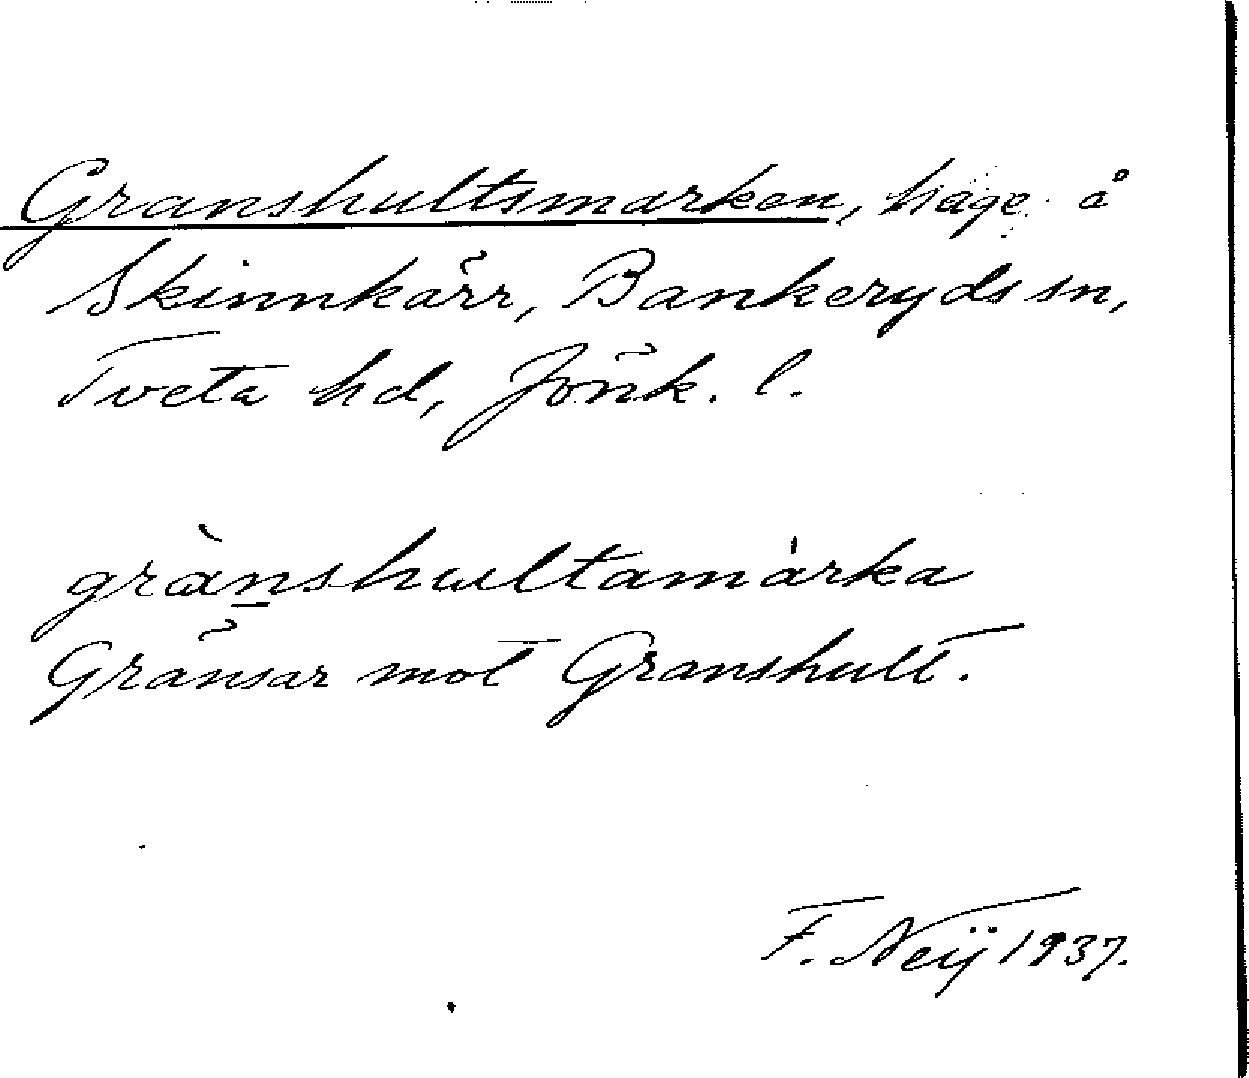 Granshultsmarken, hage å
Skinnkärr, Bankeryds sn,
Tveta hd, Jönk. l.
grànshultamàrka
Gränsar mot Granshult.
F. Neÿ 1937.